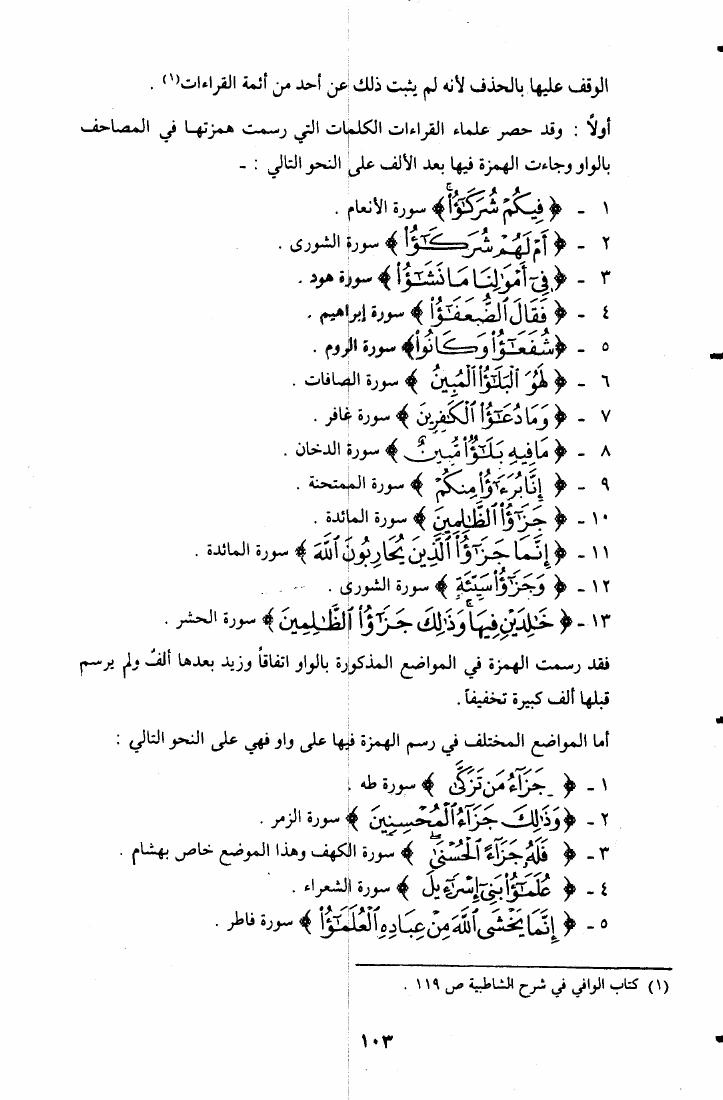 الوقف عليها بالحذف لأنه لم يثبت ذلك عن أحد من أئمة القراءات(١) .
أولاً : وقد حصر علماء القراءات الكلمات التي رسمت همزتها في المصاحف
بالواو وجاءت الهمزة فيها بعد الألف على النحو التالي : ـ
١ - ﴿ فِيكُمْ شُرَكَٰٓؤُا۟ۚ ﴾ سورة الأنعام .
٢ - ﴿ أَمْ لَهُمْ شُرَكَٰٓؤُا۟ ﴾ سورة الشورى .
٣ - ﴿ فِىٓ أَمْوَٰلِنَا مَا نَشَٰٓؤُا۟ ﴾ سورة هود .
٤ - ﴿ فَقَالَ ٱلضُّعَفَٰٓؤُا۟ ﴾ سورة إبراهيم .
٥ - ﴿ شُفَعَٰٓؤُا۟ وَكَانُوا۟ ﴾ سورة الروم .
٦ - ﴿ لَهُوَ ٱلْبَلَٰٓؤُا۟ ٱلْمُبِينُ ﴾ سورة الصافات .
٧ - ﴿ وَمَا دُعَٰٓؤُا۟ ٱلْكَٰفِرِينَ ﴾ سورة غافر .
٨ - ﴿ مَا فِيهِ بَلَٰٓؤٌا۟ مُّبِينٌ ﴾ سورة الدخان .
٩ - ﴿ إِنَّا بُرَءَٰٓؤُا۟ مِنكُمْ ﴾ سورة الممتحنة .
١٠ - ﴿ جَزَٰٓؤُا۟ ٱلظَّٰلِمِينَ ﴾ سورة المائدة .
١١ - ﴿ إِنَّمَا جَزَٰٓؤُا۟ ٱلَّذِينَ يُحَارِبُونَ ٱللَّهَ ﴾ سورة المائدة .
١٢ - ﴿ وَجَزَٰٓؤُا۟ سَيِّئَةٍ ﴾ سورة الشورى .
١٣ - ﴿ خَٰلِدَيْنِ فِيهَاۚ وَذَٰلِكَ جَزَٰٓؤُا۟ ٱلظَّٰلِمِينَ ﴾ سورة الحشر .
فقد رسمت الهمزة في المواضع المذكورة بالواو اتفاقاً وزيد بعدها ألفٌ ولم يرسم
قبلها ألف كبيرة تخفيفاً .
أما المواضع المختلف في رسم الهمزة فيها على واو فهي على النحو التالي :
١ - ﴿ جَزَآءُ مَن تَزَكَّىٰ ﴾ سورة طه .
٢ - ﴿ وَذَٰلِكَ جَزَآءُ ٱلْمُحْسِنِينَ ﴾ سورة الزمر .
٣ - ﴿ فَلَهُۥ جَزَآءً ٱلْحُسْنَىٰۖ ﴾ سورة الكهف وهذا الموضع خاص بهشام .
٤ - ﴿ عُلَمَٰٓؤُا۟ بَنِىٓ إِسْرَٰٓءِيلَ ﴾ سورة الشعراء .
٥ - ﴿ إِنَّمَا يَخْشَى ٱللَّهَ مِنْ عِبَادِهِ ٱلْعُلَمَٰٓؤُا۟ ﴾ سورة فاطر .
(١) كتاب الوافي في شرح الشاطبية ص ١١٩ .
١٠٣